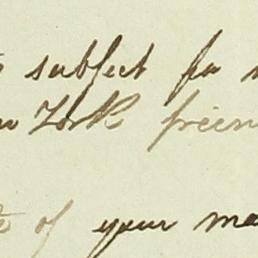 subject for
York frien
of your ma